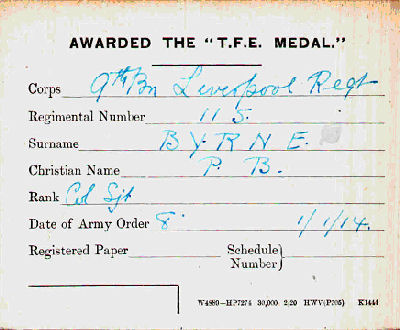 AWARDED THE "T.F.E. MEDAL."
Corps 9th Bn Liverpool Regt
Regimental Number 115.
Surname BYRNE.
Christian Name P. B.
Rank Col Sjt
Date of Army Order 8. 1/1/14.
Registered Paper Schedule Number}
W4880—HP7274 30,000 2/20 HWV(P205) K1441